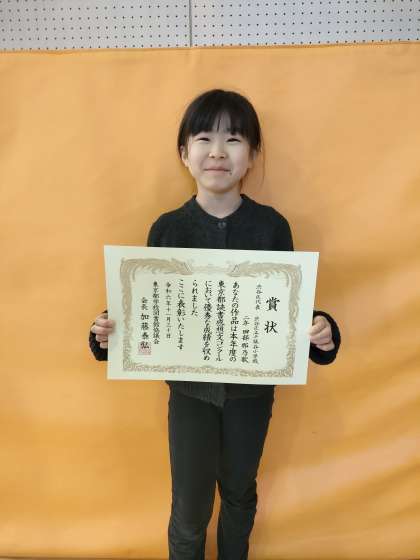 賞状
渋谷区代表 渋谷区立 小学校
二年
あなたの作品は本年度の
東京都読書感想文コンクール
において優秀な成績を収め
られました
ここに表彰いたします
令和六年十一月三十日
東京都学校図書館協議会
会長 加藤泰弘